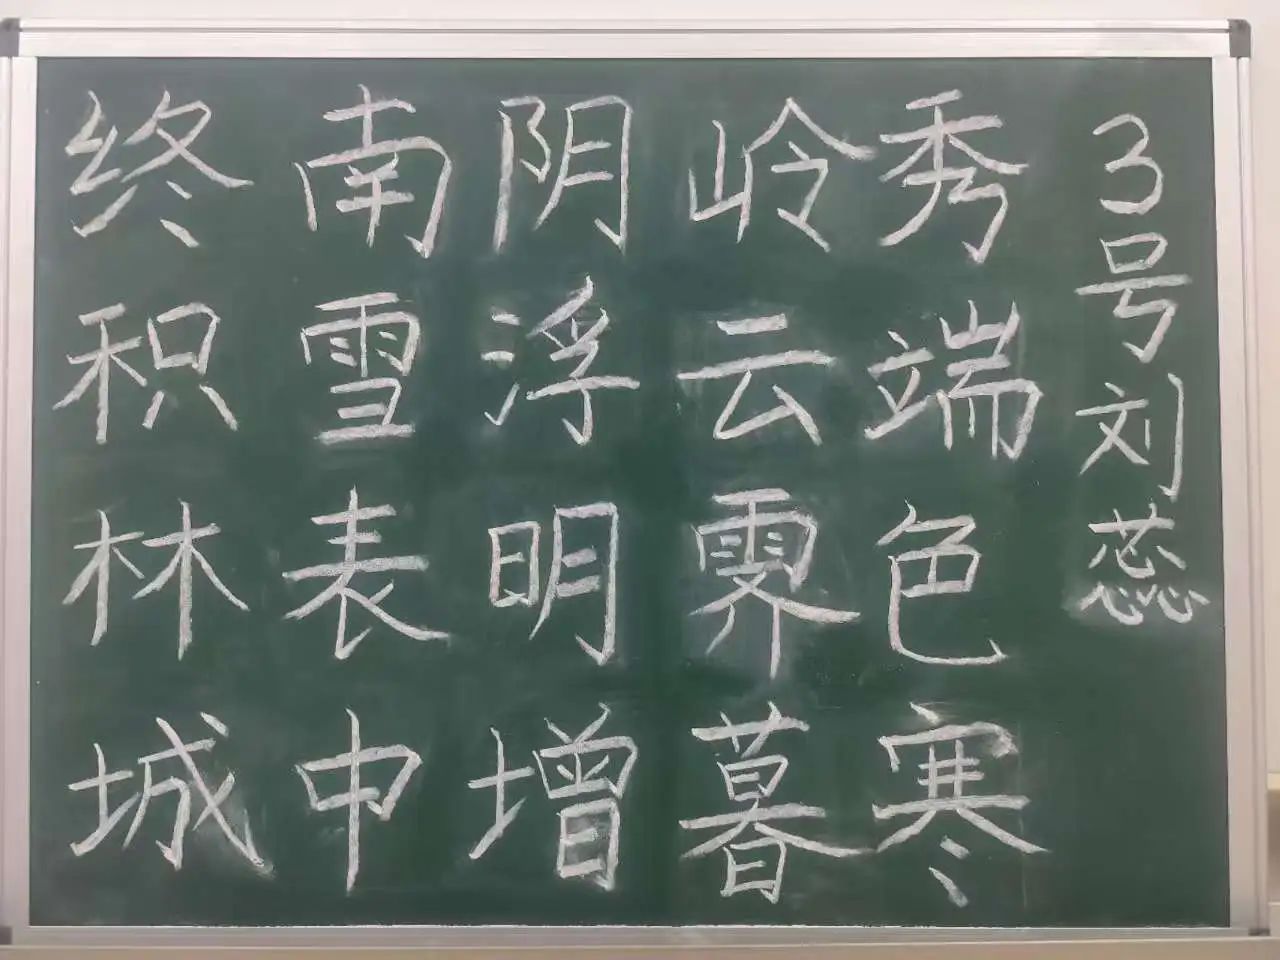 终南阴岭秀
积雪浮云端
林表明霁色
城中增暮寒
3号刘蕊